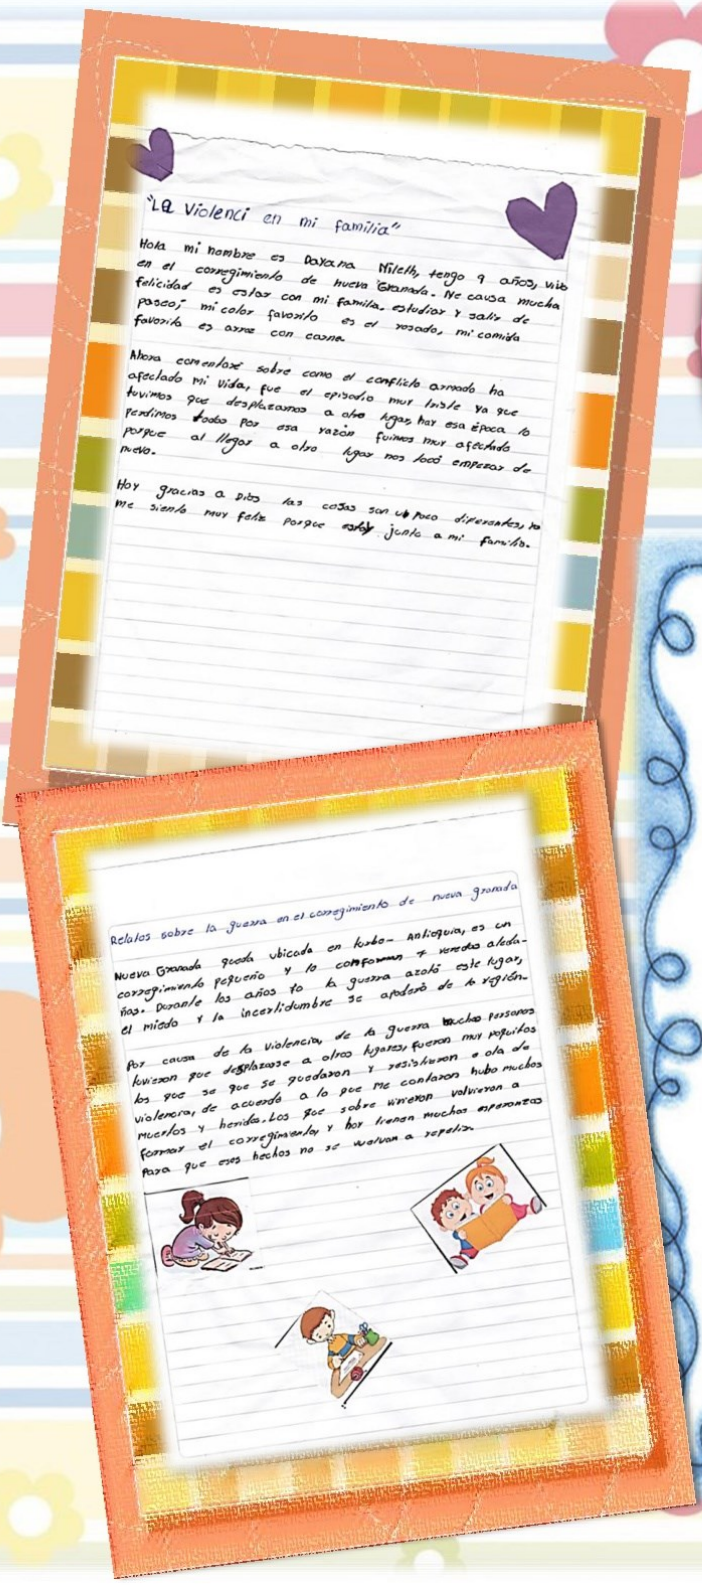 "La Violenci en mi familia"
Hola mi nombre es Dayana Mileth, tengo 9 años, vivo
en el corregimiento de nueva Granada. Me causa mucha
felicidad es estar con mi familia, estudiar y salir de
paseo; mi color favorito es el rosado, mi comida
favorita es arroz con carne.
Ahora comentaré sobre como el conflicto armado ha
afectado mi vida, fue el episodio muy triste ya que
tuvimos que desplazarnos a otro lugar, hay esa época lo
perdimos todos por esa razón fuimos muy afectado
porque al llegar a otro lugar nos tocó empezar de
nuevo.
Hoy gracias a Dios las cosas son un poco diferentes, yo
me siento muy feliz porque estoy junto a mi familia.
Relatos sobre la guerra en el corregimiento de nueva granada
Nueva Granada queda ubicada en turbo - Antioquia, es un
corregimiento pequeño y lo conforman 7 veredas aleda-
ñas. Durante los años 90 la guerra azoló este lugar,
el miedo y la incertidumbre se apoderó de la región.
Por causa de la violencia, de la guerra muchas personas
tuvieron que desplazarse a otros lugares, fueron muy poquitos
los que se que se quedaron y resistieron a ola de
violencia, de acuerdo a lo que me contaron hubo muchos
muertos y heridos. Los que sobre vivieron volvieron a
formar el corregimiento, y hoy tienen muchas esperanzas
para que esos hechos no se vuelvan a repetir.